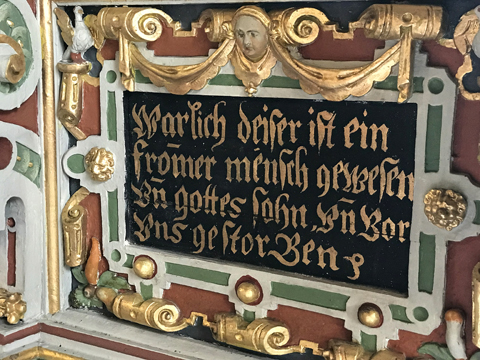 Warlich deiser ist ein
from̄er mensch gewesen
Vn̄ gottes sohn, Vn̄ Vor
Vns gestorBen